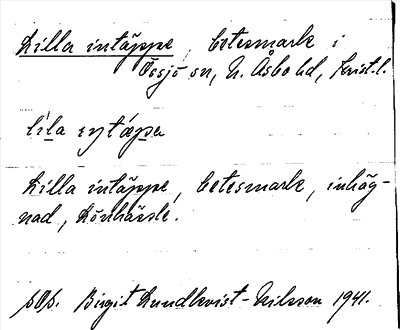 Lilla intäppe, betesmark i
Össjö sn, N. Åsbo hd, Krist.l.
lila
Lilla intäppe, betesmark, inhäg-
nad, Lönhässle.
Birgit Lundkvist-Nilsson 1941.